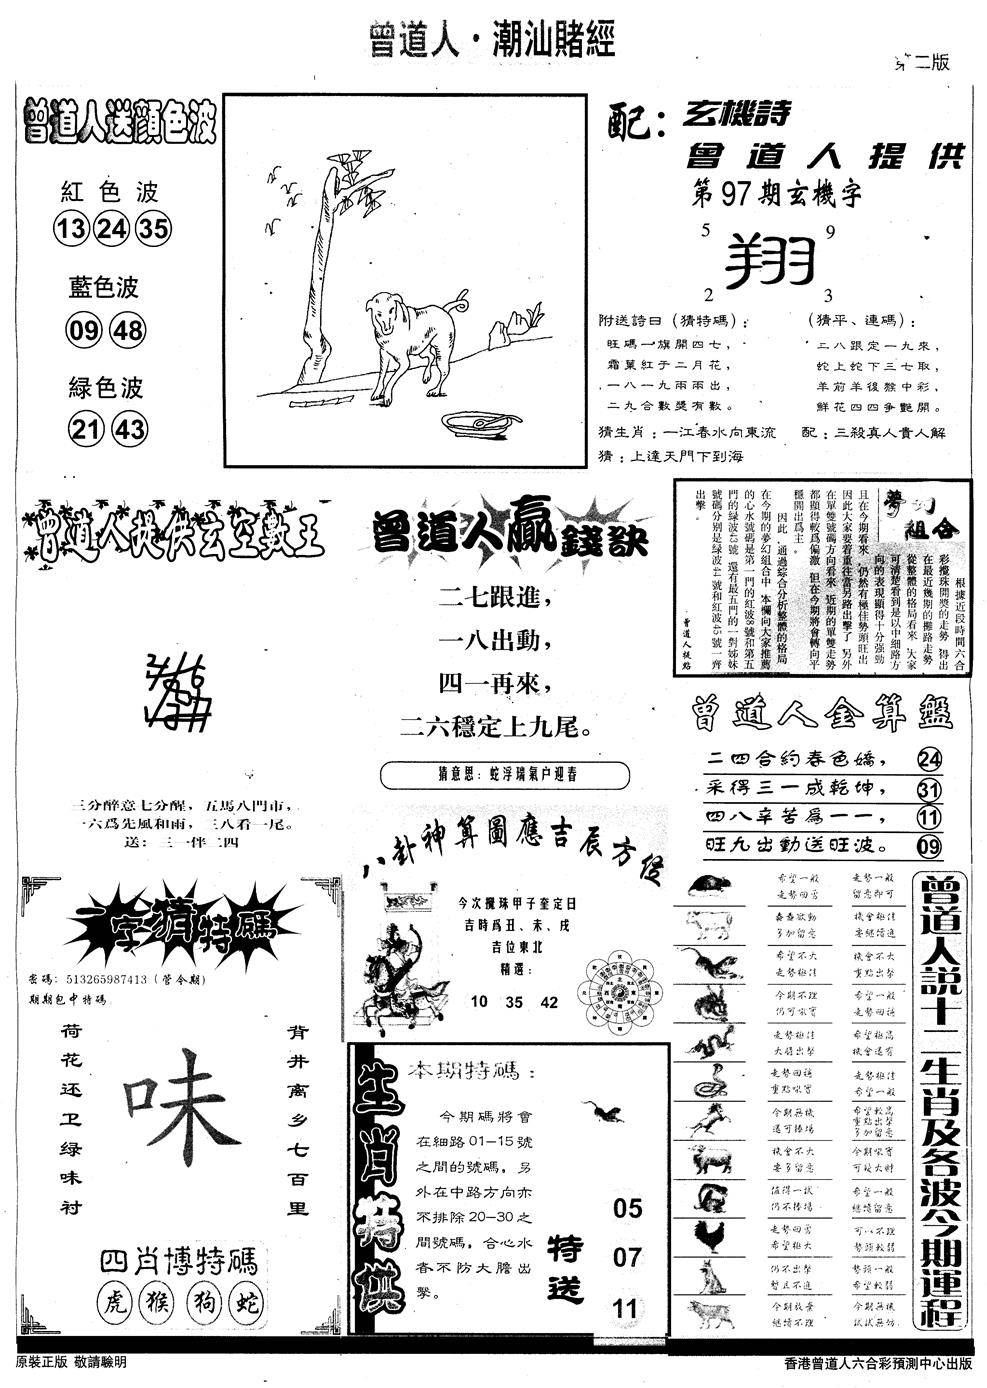 曾道人·潮汕賭經
第二版
曾道人送顏色波
紅色波
13 24 35
藍色波
09 48
緑色波
21 43
配：玄機詩
曾道人提供
第97期玄機字
5 9
翔
2 3
附送詩曰（猜特碼）：
旺碼一旗開四七，
霜葉紅于二月花，
一八一九兩兩出，
二九合數獎有數。
（猜平、連碼）：
二八跟定一九來，
蛇上蛇下三七取，
羊前羊後猴中彩，
鮮花四四爭艷開。
猜生肖：一江春水向東流
配：三殺真人貴人解
猜：上達天門下到海
曾道人提供玄空數王
三分醉意七分醒，五馬八門市，
一六爲先風和雨，三八看一尾。
送：三一伴二四
曾道人贏錢訣
二七跟進，
一八出動，
四一再來，
二六穩定上九尾。
猜意思：蛇浮瑞氣户迎春
夢幻組合
根據近段時間六合
彩攪珠開獎的走勢，得出
在最近幾期的攤路走勢
從整體的格局看來，大家
可清楚看到是以中細路方
向的表現顯得十分強勁
且在今期看來，仍然有極佳勢頭旺出
因此大家要着重往當另路出擊了，另外
在單雙號碼方向看來，近期的單雙走勢
都顯得較爲偏激，但在今期將會轉向平
穩開出爲主。
因此，通過綜合分析整體的格局
在今期的夢幻組合中，本欄向大家推薦
的心水號碼是第一門的紅波8號和第五
門的緑波43號，還有最五門的一對姊妹
號碼分别是緑波44號和紅波45號一齊
出擊。
曾道人提點
曾道人金算盤
二四合約春色嬌， 24
采得三一成乾坤， 31
四八辛苦爲一一， 11
旺九出動送旺波。 09
一字猜特碼
密碼：513265987413（管令期）
期期包中特碼
荷花还卫绿味衬
味
背井离乡七百里
四肖博特碼
虎 猴 狗 蛇
八卦神算圖應吉辰方位
今次攪珠甲子奎定日
吉時爲丑、未、戌
吉位東北
精選：
10 35 42
生肖特供
本期特碼：
今期碼將會
在細路01-15號
之間的號碼，另
外在中路方向亦
不排除20-30之
間號碼，合心水
者不防大膽出
擊。
特送
05
07
11
曾道人説十二生肖及各波今期運程
希望一般 走勢一般
走勢回勇 留意即可
蠢蠢欲動 機會極佳
多加留意 要繼續追
希望不大 機會不大
走勢極佳 重點出擊
今期不理 希望一般
仍可吼實 走勢回穩
走勢極佳 希望極高
大膽出擊 機會還有
走勢回穩 走勢極佳
重點吼實 希望一般
今期無機 希望較高
還可捧場 重點出擊
多加留意
機會不大 今期吼實
要多留意 可較大財
值得一試 希望一般
仍不捧場 繼續留意
走勢回勇 可以不理
希望極大 勢頭較弱
仍不出擊 勢頭一般
暫且不追 希望較弱
今期放棄 今期無機
繼續不理 試試無妨
原裝正版 敬請驗明
香港曾道人六合彩預測中心出版